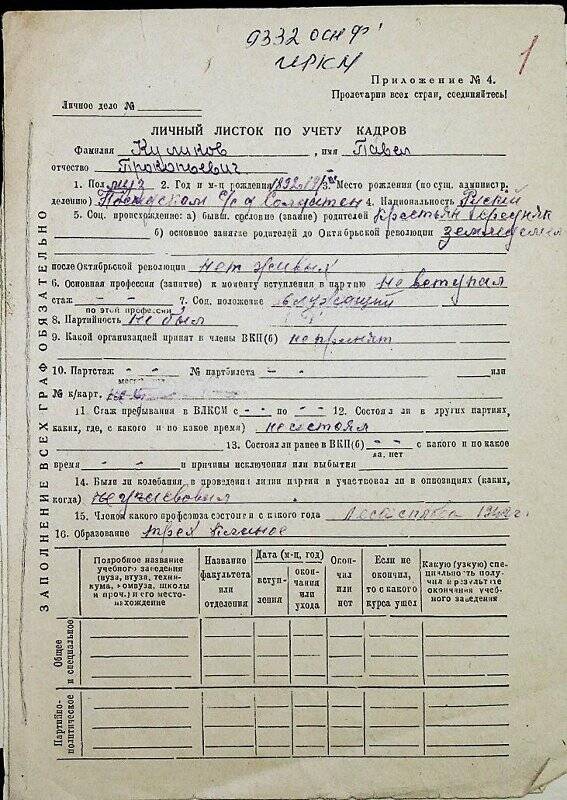 9332 осн ф
ИРКМ
1
Приложение № 4.
Пролетарии всех стран, соединяйтесь!
Личное дело №
ЛИЧНЫЙ ЛИСТОК ПО УЧЕТУ КАДРОВ
Фамилия Куликов, имя Павел
отчество Прокопьевич
1. Пол муз 2. Год и м-ц рождения 1892 3. Место рождения (по сущ. администр.
делению) с/с д Солдатен 4. Национальность Руский
5. Соц. происхождение: а) бывш. сословие (звание) родителей крестьян середняк
б) основное занятие родителей до Октябрьской революции земледелия
после Октябрьской революции нет живых
6. Основная профессия (занятие) к моменту вступления в партию не вступал
стаж - - 7. Соц. положение служащий
по этой профессии
8. Партийность не был
9. Какой организацией принят в члены ВКП(б) не принят
10. Партстаж - - № партбилета - - или
№ к/карт.
11. Стаж пребывания в ВЛКСМ с - - по - - 12. Состоял ли в других партиях,
каких, где, с какого и по какое время) несостоял
13. Состоял ли ранее в ВКП(б) - - с какого и по какое
да, нет
время - - и причины исключения или выбытия
14. Были ли колебания в проведении линии партии и участвовал ли в оппозициях (каких,
когда) неучаствовал
15. Членом какого профсоюза состоит и с какого года Лесосплава
16. Образование трех
ЗАПОЛНЕНИЕ ВСЕХ ГРАФ ОБЯЗАТЕЛЬНО
Подробное название учебного заведения (вуза, втуза, техникума, комвуза, школы и проч.) и его местонахождение
Название факультета или отделения
Дата (м-ц, год)
вступления
окончания или ухода
Окончил или нет
Если не окончил, то с какого курса ушел
Какую (узкую) специальность получил в результате окончания учебного заведения
Общее и специальное
Партийно-политическое